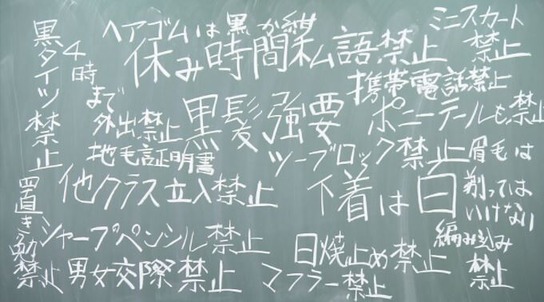 ヘアゴムは黒か紺
ミニスカート
禁止
黒タイツ禁止
4時
まで
外出禁止
休み時間私語禁止
携帯電話禁止
黒髪強要
ポニーテールも禁止
地毛証明書
ツーブロック禁止
眉毛は
剃っては
いけない
他クラス立入禁止
下着は白
置き勉
禁止
シャープペンシル禁止
日焼止め禁止
編み込み
禁止
男女交際禁止
マフラー禁止